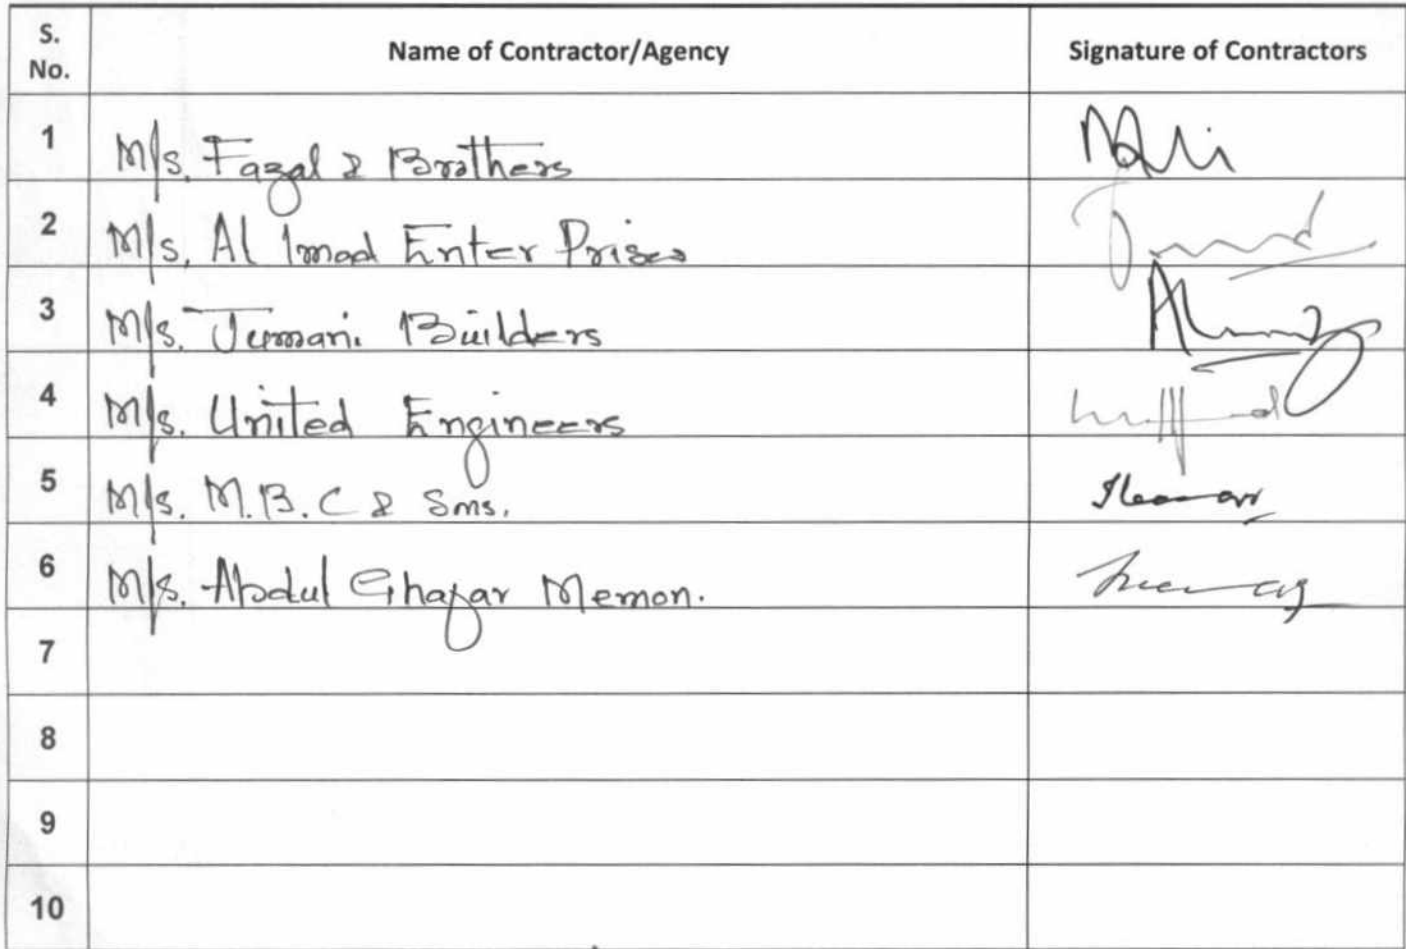 S. No. Name of Contractor/Agency Signature of Contractors
1 M/s. Fazal & Brothers
2 M/s. Al Imad Enter Prises
3 M/s. Jumani Builders
4 M/s. United Engineers
5 M/s. M.B.C & Sons.
6 M/s. Abdul Ghafar Memon.
7
8
9
10